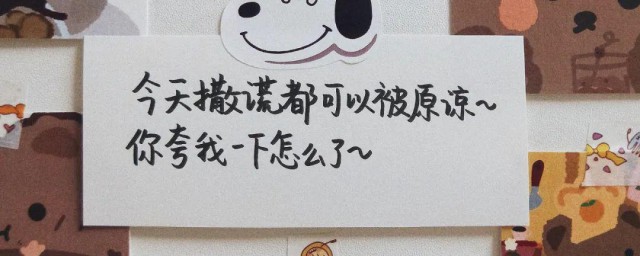 今天撒谎都可以被原谅~
你夸我一下怎么了~